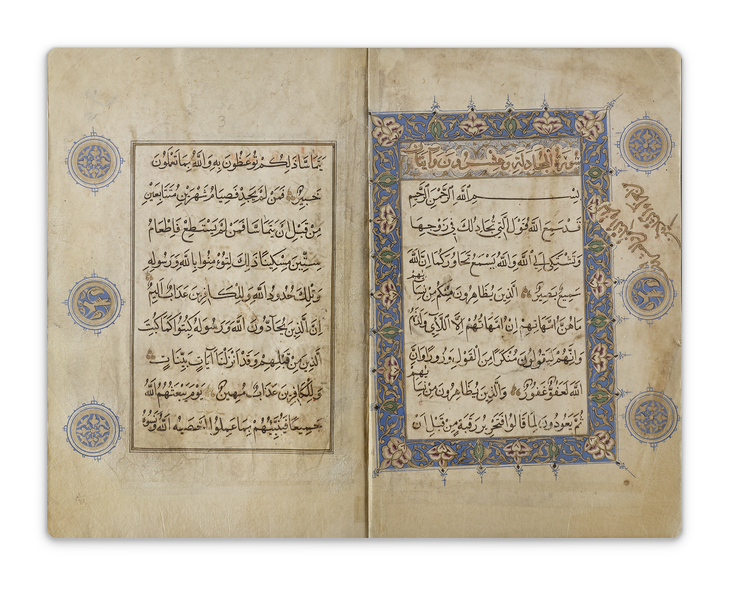 سورة المجادلة وعشرون وآيتان
بسم الله الرحمن الرحيم
قد سمع الله قول التي تجادلك في زوجها
وتشتكي إلى الله والله يسمع تحاوركما إن الله
سميع بصير الذين يظاهرون منكم من نسائهم
ما هن أمهاتهم إن أمهاتهم إلا اللائي ولدنهم
وإنهم ليقولون منكرا من القول وزورا وإن
الله لعفو غفور والذين يظاهرون من نسائهم
ثم يعودون لما قالوا فتحرير رقبة من قبل أن
يتماسا ذلكم توعظون به والله بما تعملون
خبير فمن لم يجد فصيام شهرين متتابعين
من قبل أن يتماسا فمن لم يستطع فإطعام
ستين مسكينا ذلك لتؤمنوا بالله ورسوله
وتلك حدود الله وللكافرين عذاب أليم
إن الذين يحادون الله ورسوله كبتوا كما كبت
الذين من قبلهم وقد أنزلنا آيات بينات
وللكافرين عذاب مهين يوم يبعثهم الله
جميعا فينبئهم بما عملوا أحصيه الله ونسوه